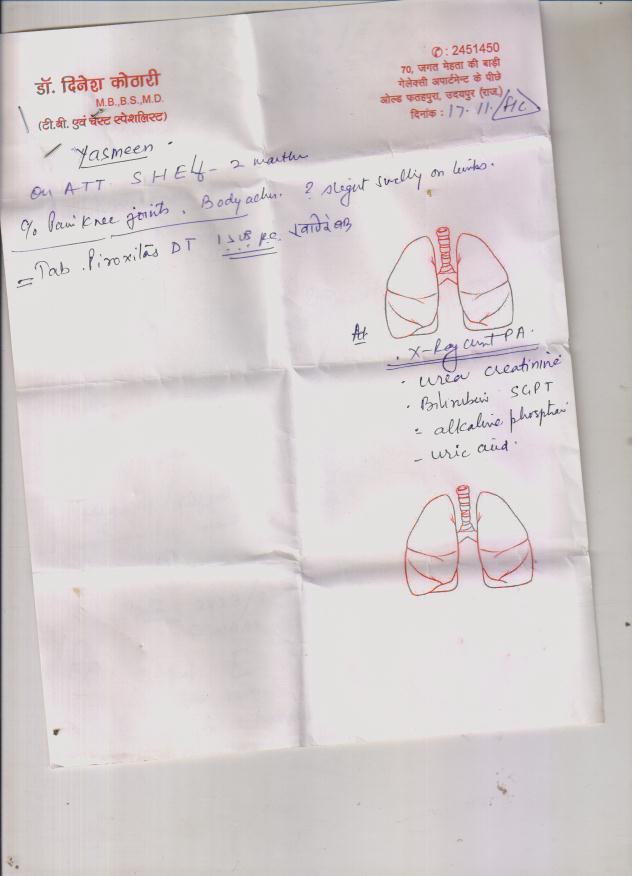 डॉ. दिनेश कोठारी
M.B.,B.S.,M.D.
(टी.बी. एवं चेस्ट स्पेशलिस्ट)
✆: 2451450
70, जगत मेहता की बाड़ी
गेलेक्सी अपार्टमेन्ट के पीछे
ओल्ड फतहपुरा, उदयपुर (राज.)
दिनांक : 17.11.
Yasmeen
On ATT SHE 2 months
c/o Pain Knee joints. Body aches. ? slight swelling on limbs.
= Tab. Piroxitas DT p.c.
Adv
. X-Ray chest PA.
. urea creatinine
. Bilirubin SGPT
= alkaline phosphat
- uric acid.